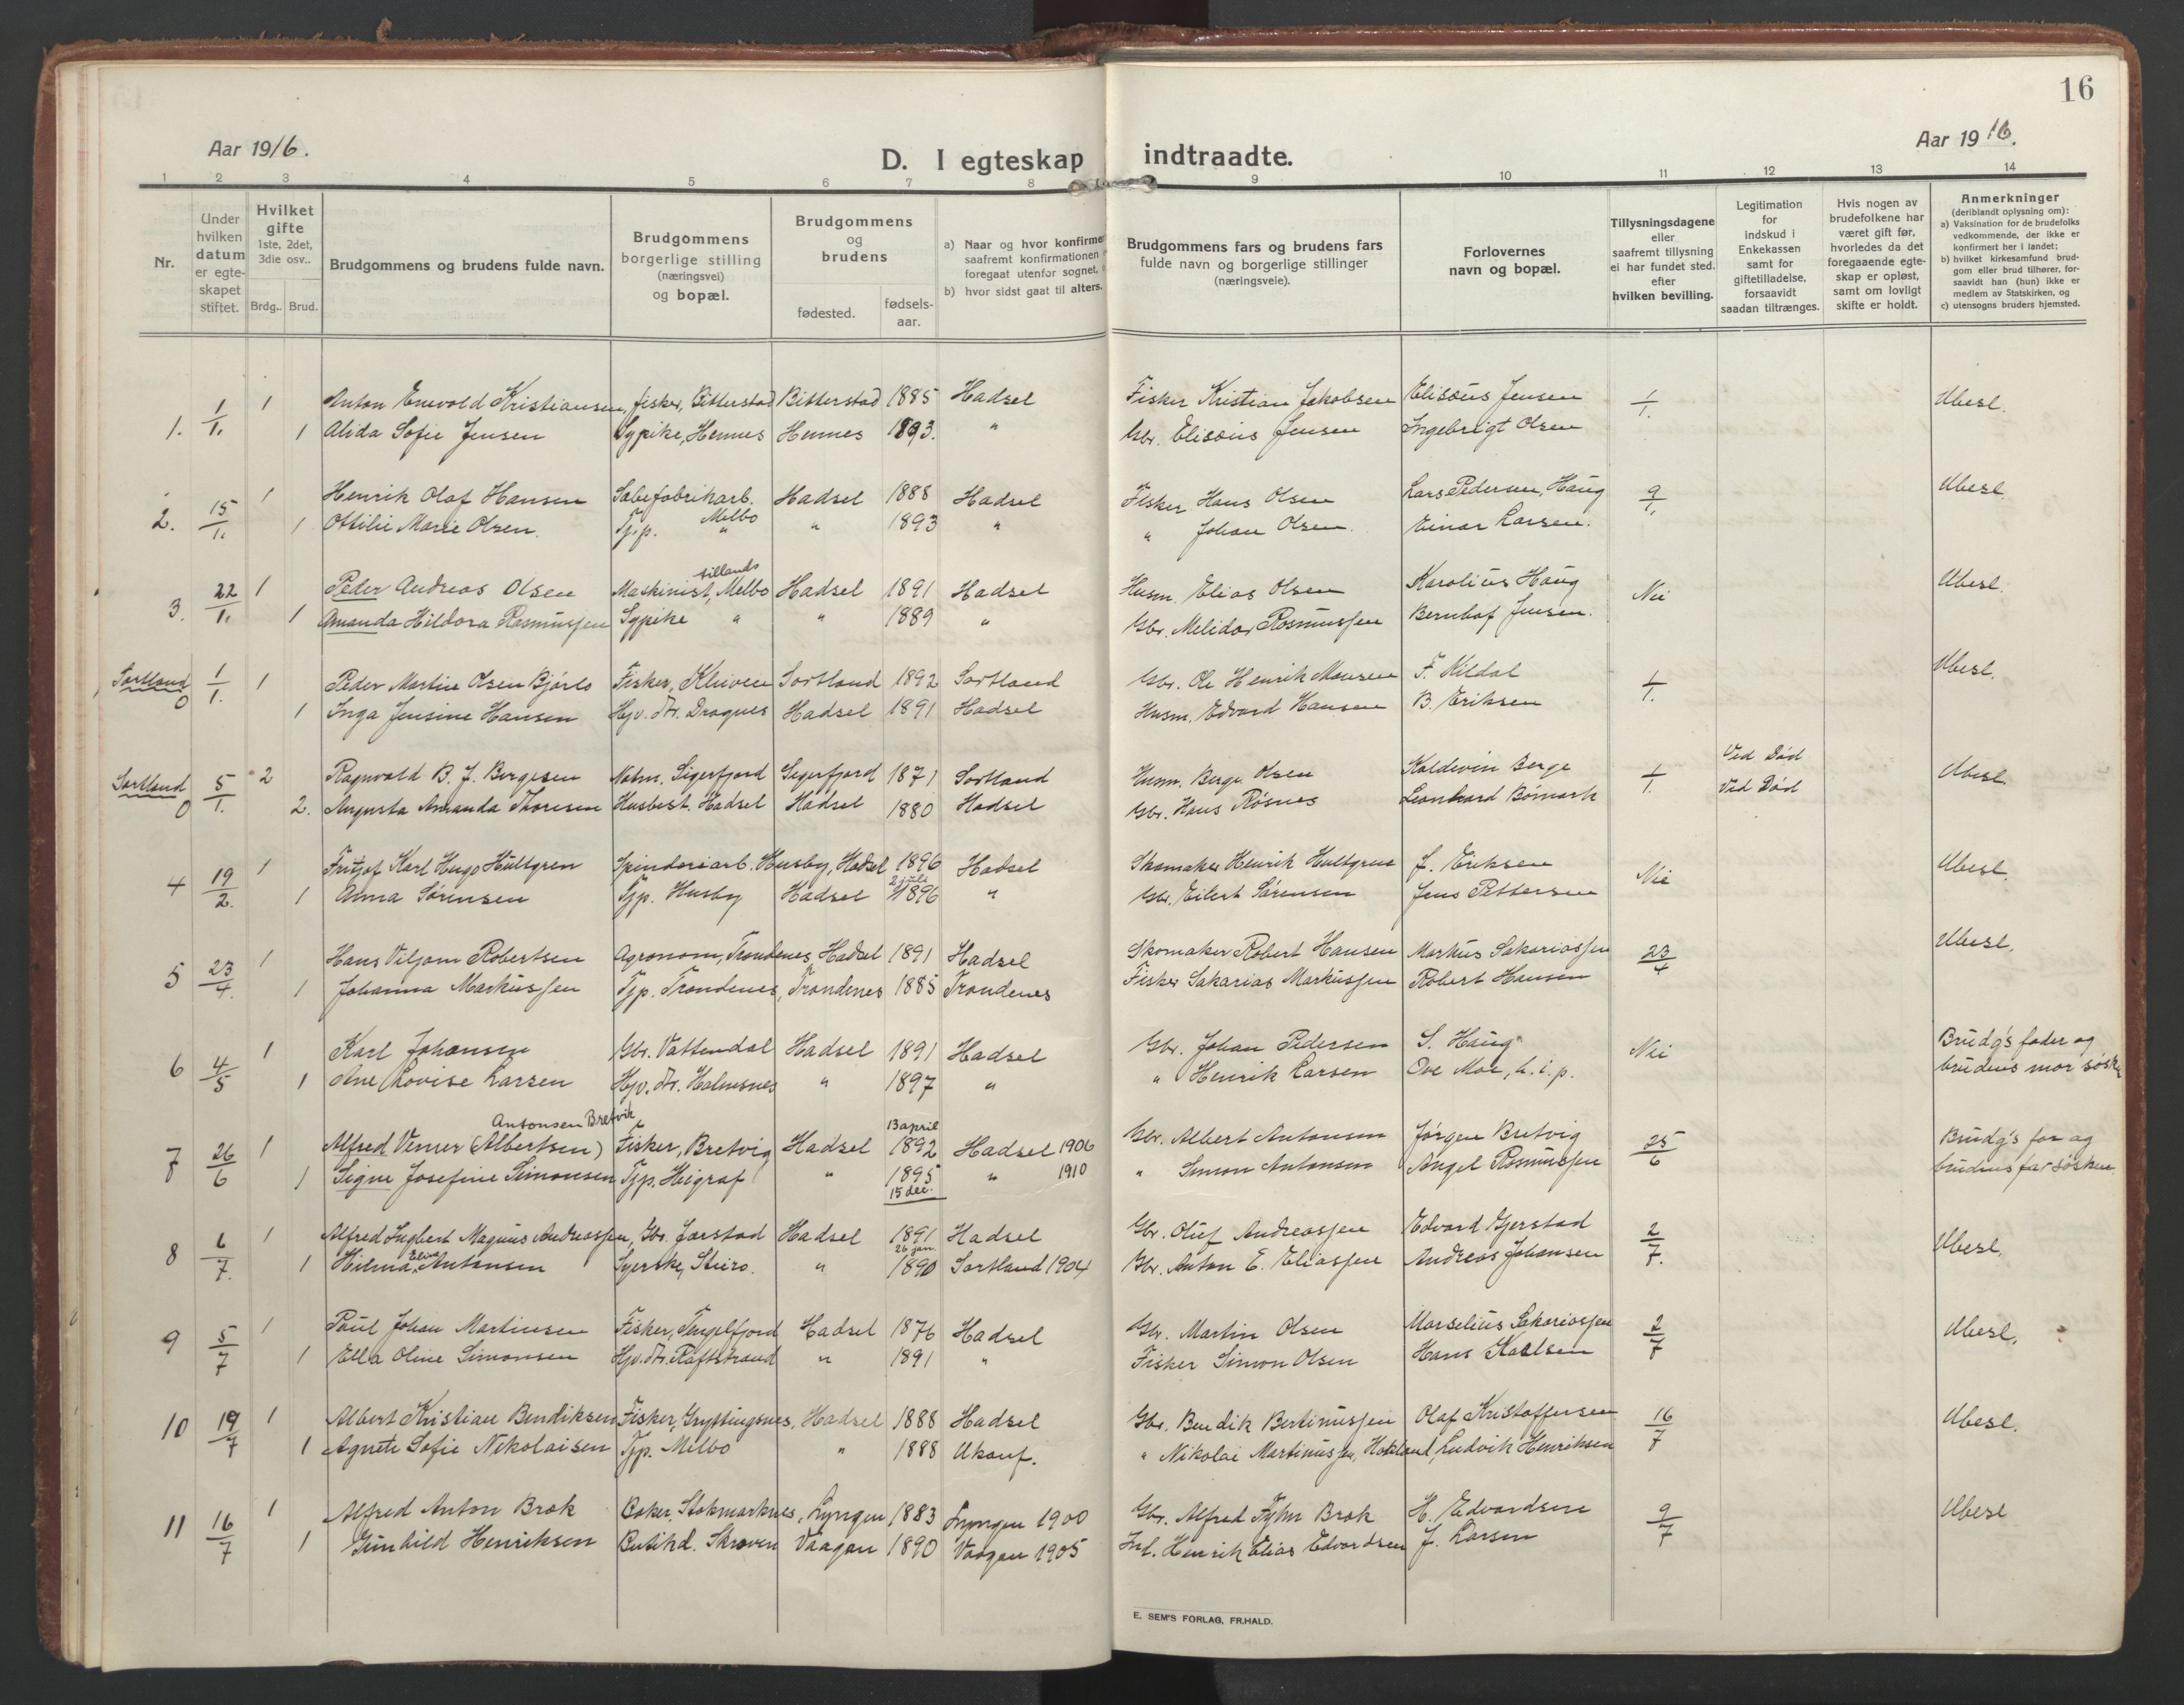 16
Aar 1916.
Aar 1916.
D. I egteskap indtraadte.
1 2 3 4 5 6 7 8 9 10 11 12 13 14
Nr.
Under hvilken datum er egteskapet stiftet.
Hvilket gifte 1ste, 2det, 3die osv..
Brdg.. Brud.
Brudgommens og brudens fulde navn.
Brudgommens borgerlige stilling (næringsvei) og bopæl.
Brudgommens og brudens
fødested.
fødsels-aar.
a) Naar og hvor konfirme
saafremt konfirmationen
foregaat utenfor sognet,
b) hvor sidst gaat til alters.
Brudgommens fars og brudens fars
fulde navn og borgerlige stillinger
(næringsveie).
Forlovernes
navn og bopæl.
Tillysningsdagene
eller
saafremt tillysning
ei har fundet sted.
efter
hvilken bevilling.
Legitimation
for
indskud i
Enkekassen
samt for
giftetilladelse,
forsaavidt
saadan tiltrænges.
Hvis nogen av
brudefolkene har
været gift før,
hvorledes da det
foregaaende egte-
skap er opløst,
samt om lovligt
skifte er holdt.
Anmerkninger
(deriblandt oplysning om):
a) Vaksination for de brudefolks
vedkommende, der ikke er
konfirmert her i landet;
b) hvilket kirkesamfund brud-
gom eller brud tilhører, for-
saavidt han (hun) ikke er
medlem av Statskirken, og
c) utensogns bruders hjemsted.
1. 1/1. 1 Anton Enevold Kristiansen, fisker, Bitterstad Bitterstad 1885 Hadsel Fisker Kristian Jakobsen Elisæus Jensen 1/1. Ubesl.
1 Alida Sofie Jensen Sypike, Hennes Hennes 1893. " Gbr. Elisæus Jensen Ingebrigt Olsen
2. 15/1. 1 Henrik Olaf Hansen Sæbefabrikarb. Melbo Hadsel 1888 Hadsel Fisker Hans Olsen Lars Pedersen, Haug 9/1. Ubesl.
1 Ottilie Marie Olsen. Tjp. " " 1893 " " Johan Olsen. Einar Larsen.
3. 22/1. 1 Peder Andreas Olsen Maskinist, tillands Melbo Hadsel 1891 Hadsel Husm. Elias Olsen Karolius Haug Nei Ubesl.
1 Amanda Hildora Rasmussen Sypike " " 1889 " Gbr. Melidor Rasmussen Bernhof Jensen.
Sortland 0 1/1. 1 Peder Martin Olsen Bjørlo Fisker, Kleiven Sortland 1892 Sortland Gbr. Ole Henrik Monsen F. Kildal 1/1. Ubesl.
1 Inga Jensine Hansen Hjv. dtr. Dragnes Hadsel 1891 Hadsel Husm. Edvard Hansen B. Eriksen
Sortland 0 5/1. 2 Ragnvald B. J. Bergesen Notm. Sigerfjord Sigerfjord 1871 Sortland Husm. Berge Olsen Koldevin Berge 1/1. Ved Død Ubesl.
2. Augusta Amanda Thoresen Husbest. Hadsel Hadsel 1880 Hadsel Gbr. Hans Røsnes Leonhard Bømark Ved Død
4 19/2. 1 Fritjof Karl Hugo Hultgren Spinderiarb. Husby, Hadsel 1896 Hadsel Skomaker Henrik Hultgren J. Eriksen Nei Ubesl.
1 Anna Sørensen Tjp. Husby Hadsel 2 juli 1896 " Gbr. Eilert Sørensen Jens Pettersen
5 23/4. 1 Hans Viljam Robertsen Agronom, Trondenes, Hadsel 1891 Hadsel Skomaker Robert Hansen Markus Sakariassen 23/4 Ubesl.
1 Johanna Markussen Tjp. Trondenes, Trondenes 1885 Trondenes Fisker Sakarias Markussen Robert Hansen
6 4/5 1 Karl Johansen Gbr. Vattendal Hadsel 1891 Hadsel Gbr. Johan Pedersen S. Haug Nei Brudg's fader og
1 Ane Lovise Larsen Hjv. dtr. Holmsnes " 1897 " " Henrik Larsen Ove Moe, h.i.p. brudens mor søsk
7 26/6 1 Alfred Verner (Albertsen) Antonsen Bretvik Fisker, Bretvig Hadsel 13 april 1892 Hadsel 1906 Gbr. Albert Antonsen Jørgen Bretvig 25/6 Brudg's far og
1 Signe Josefine Simonsen Tjp. Heigraf " 1895 15 dec. " 1910 " Simon Antonsen Angel Rasmussen brudens far søsken
8 6/7. 1 Alfred Ingbert Magnus Andreassen, Gbr. Jørstad Hadsel 1891 Hadsel Gbr. Oluf Andreassen Edvard Gjerstad 2/7. Ubesl.
1 Hilma Elise Antonsen Syerske, Steiro. " 26 jan. 1890 Sortland 1904 Gbr. Anton E. Eliassen Andreas Johansen
9 5/7 1 Paul Johan Martinsen Fisker, Tengelfjord Hadsel 1876 Hadsel Gbr. Martin Olsen Marselius Sakariassen 2/7 Ubesl.
1 Ella Oline Simonsen Hjv. dtr. Raftstrand " 1891 " Fisker Simon Olsen Hans Karlsen
10 19/7 1 Albert Kristian Bendiksen Fisker, Gryttingsnes, Hadsel 1888 Hadsel Gbr. Bendik Bertinussen Olaf Kristoffersen 16/7 Ubesl.
1 Agnete Sofie Nikolaisen Tjp. Melbo " 1888 Ukonf. " Nikolai Martinussen, Hokland, Ludvik Henriksen
11 16/7 1 Alfred Anton Bræk Baker, Stokmarknes, Lyngen 1883 Lyngen 1900 Gbr. Alfred Fyhn Bræk H. Edvardsen 9/7 Ubesl
1 Gunhild Henriksen Butikd. Skroven Vaagan 1890 Vaagan 1905 Henrik Elias Edvardsen J. Larsen
E. SEM'S FORLAG, FR.HALD.